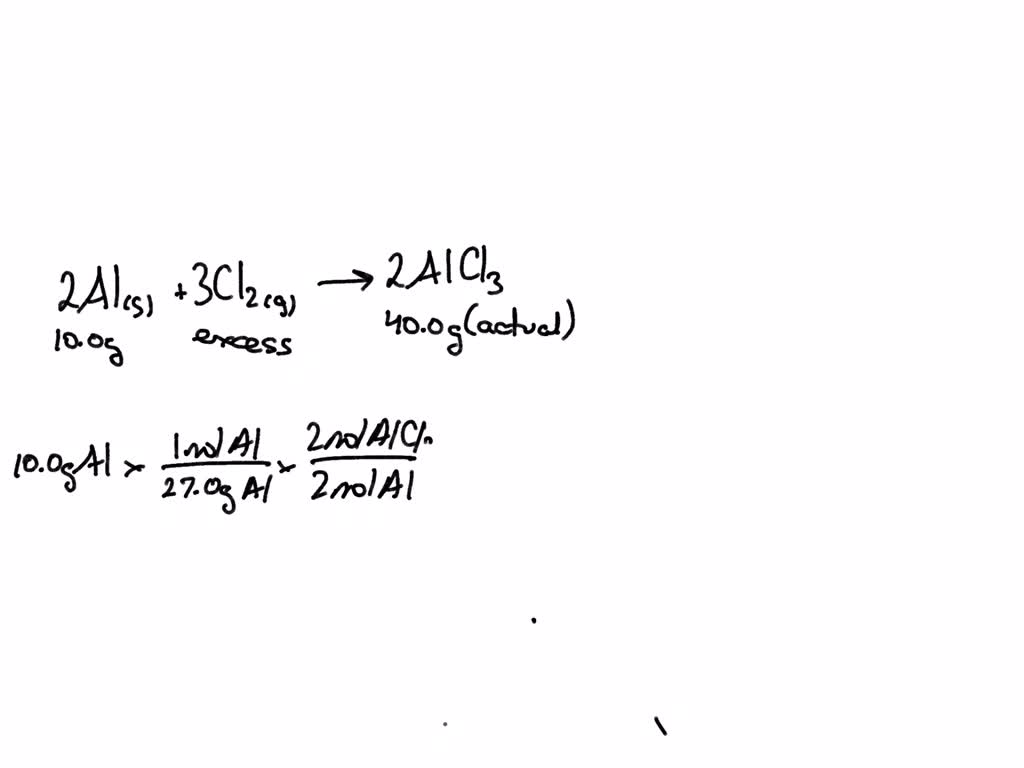 2Al(s) + 3Cl2(g) → 2AlCl3
10.0g excess 40.0g(actual)
10.0gAl × 1molAl/27.0gAl × 2molAlCl/2molAl